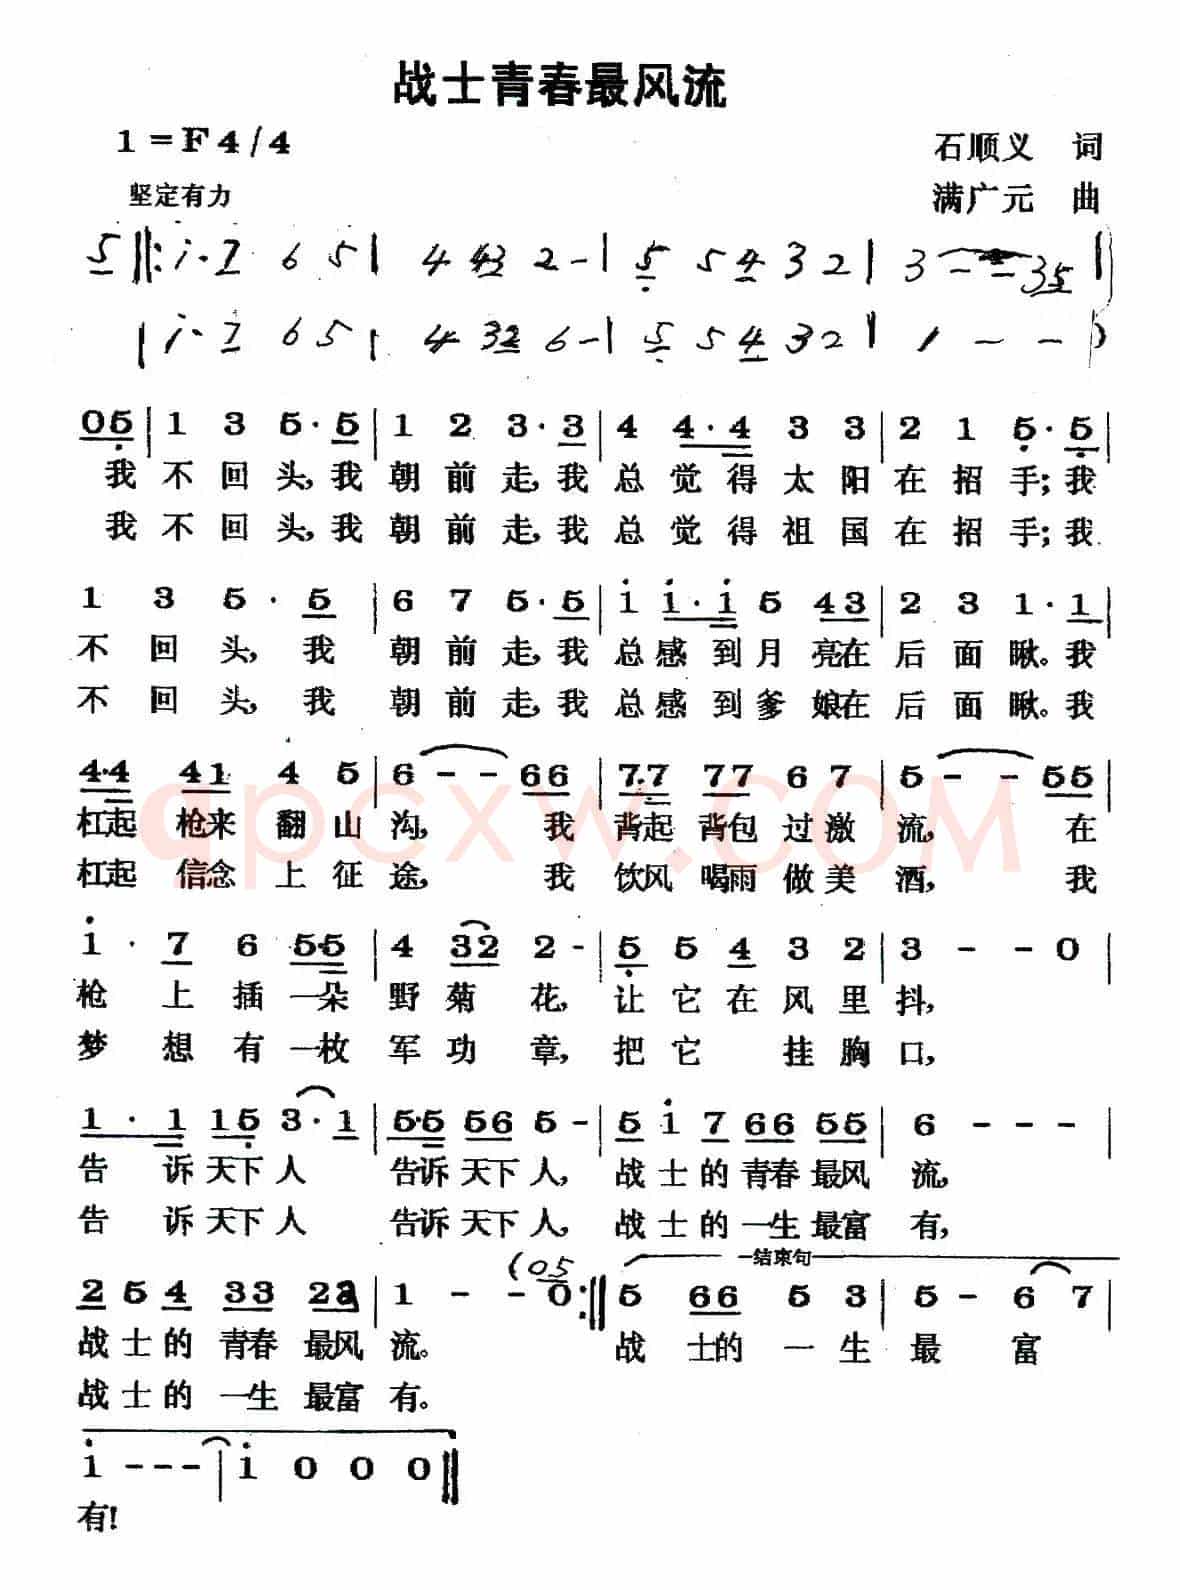 战士青春最风流
1=F 4/4
石顺义 词
坚定有力
满广元 曲
5 ‖: i· 7 6 5 | 4 43 2 - | 5 5 4 3 2 | 3 - - 35 |
| i· 7 6 5 | 4 32 6 - | 5 5 4 3 2 | 1 - - )
05 | 1 3 5· 5 | 1 2 3· 3 | 4 4·4 3 3 | 2 1 5· 5 |
我 不 回 头, 我 朝 前 走, 我 总 觉 得 太 阳 在 招 手; 我
我 不 回 头, 我 朝 前 走, 我 总 觉 得 祖 国 在 招 手; 我
1 3 5· 5 | 6 7 5· 5 | i i·i 5 43 | 2 3 1· 1 |
不 回 头, 我 朝 前 走, 我 总 感 到 月 亮在 后 面 瞅。 我
不 回 头, 我 朝 前 走, 我 总 感 到 爹 娘在 后 面 瞅。 我
4·4 41 4 5 | 6 - - 66 | 7·7 77 6 7 | 5 - - 55 |
杠起 枪来 翻 山 沟, 我 背起 背包 过 激 流, 在
杠起 信念 上 征 途, 我 饮风 喝雨 做 美 酒, 我
qpcxw.COM
i · 7 6 5·5 | 4 32 2 - | 5 5 4 3 2 | 3 - - 0 |
枪 上 插 一朵 野 菊 花, 让 它 在 风 里 抖,
梦 想 有 一枚 军 功 章, 把 它 挂 胸 口,
1 · 1 15 3· 1 | 5·5 56 5 - | 5 i 7 66 55 | 6 - - - |
告 诉 天下 人 告诉 天下 人, 战 士 的 青春 最风 流,
告 诉 天下 人 告诉 天下 人, 战 士 的 一生 最富 有,
(05 结束句
2 5 4 33 22 | 1 - - 0 :‖ 5 66 5 3 | 5 - 6 7 |
战 士 的 青春 最风 流。 战 士的 一 生 最 富
战 士 的 一生 最富 有。
i - - - | i 0 0 0 ‖
有!